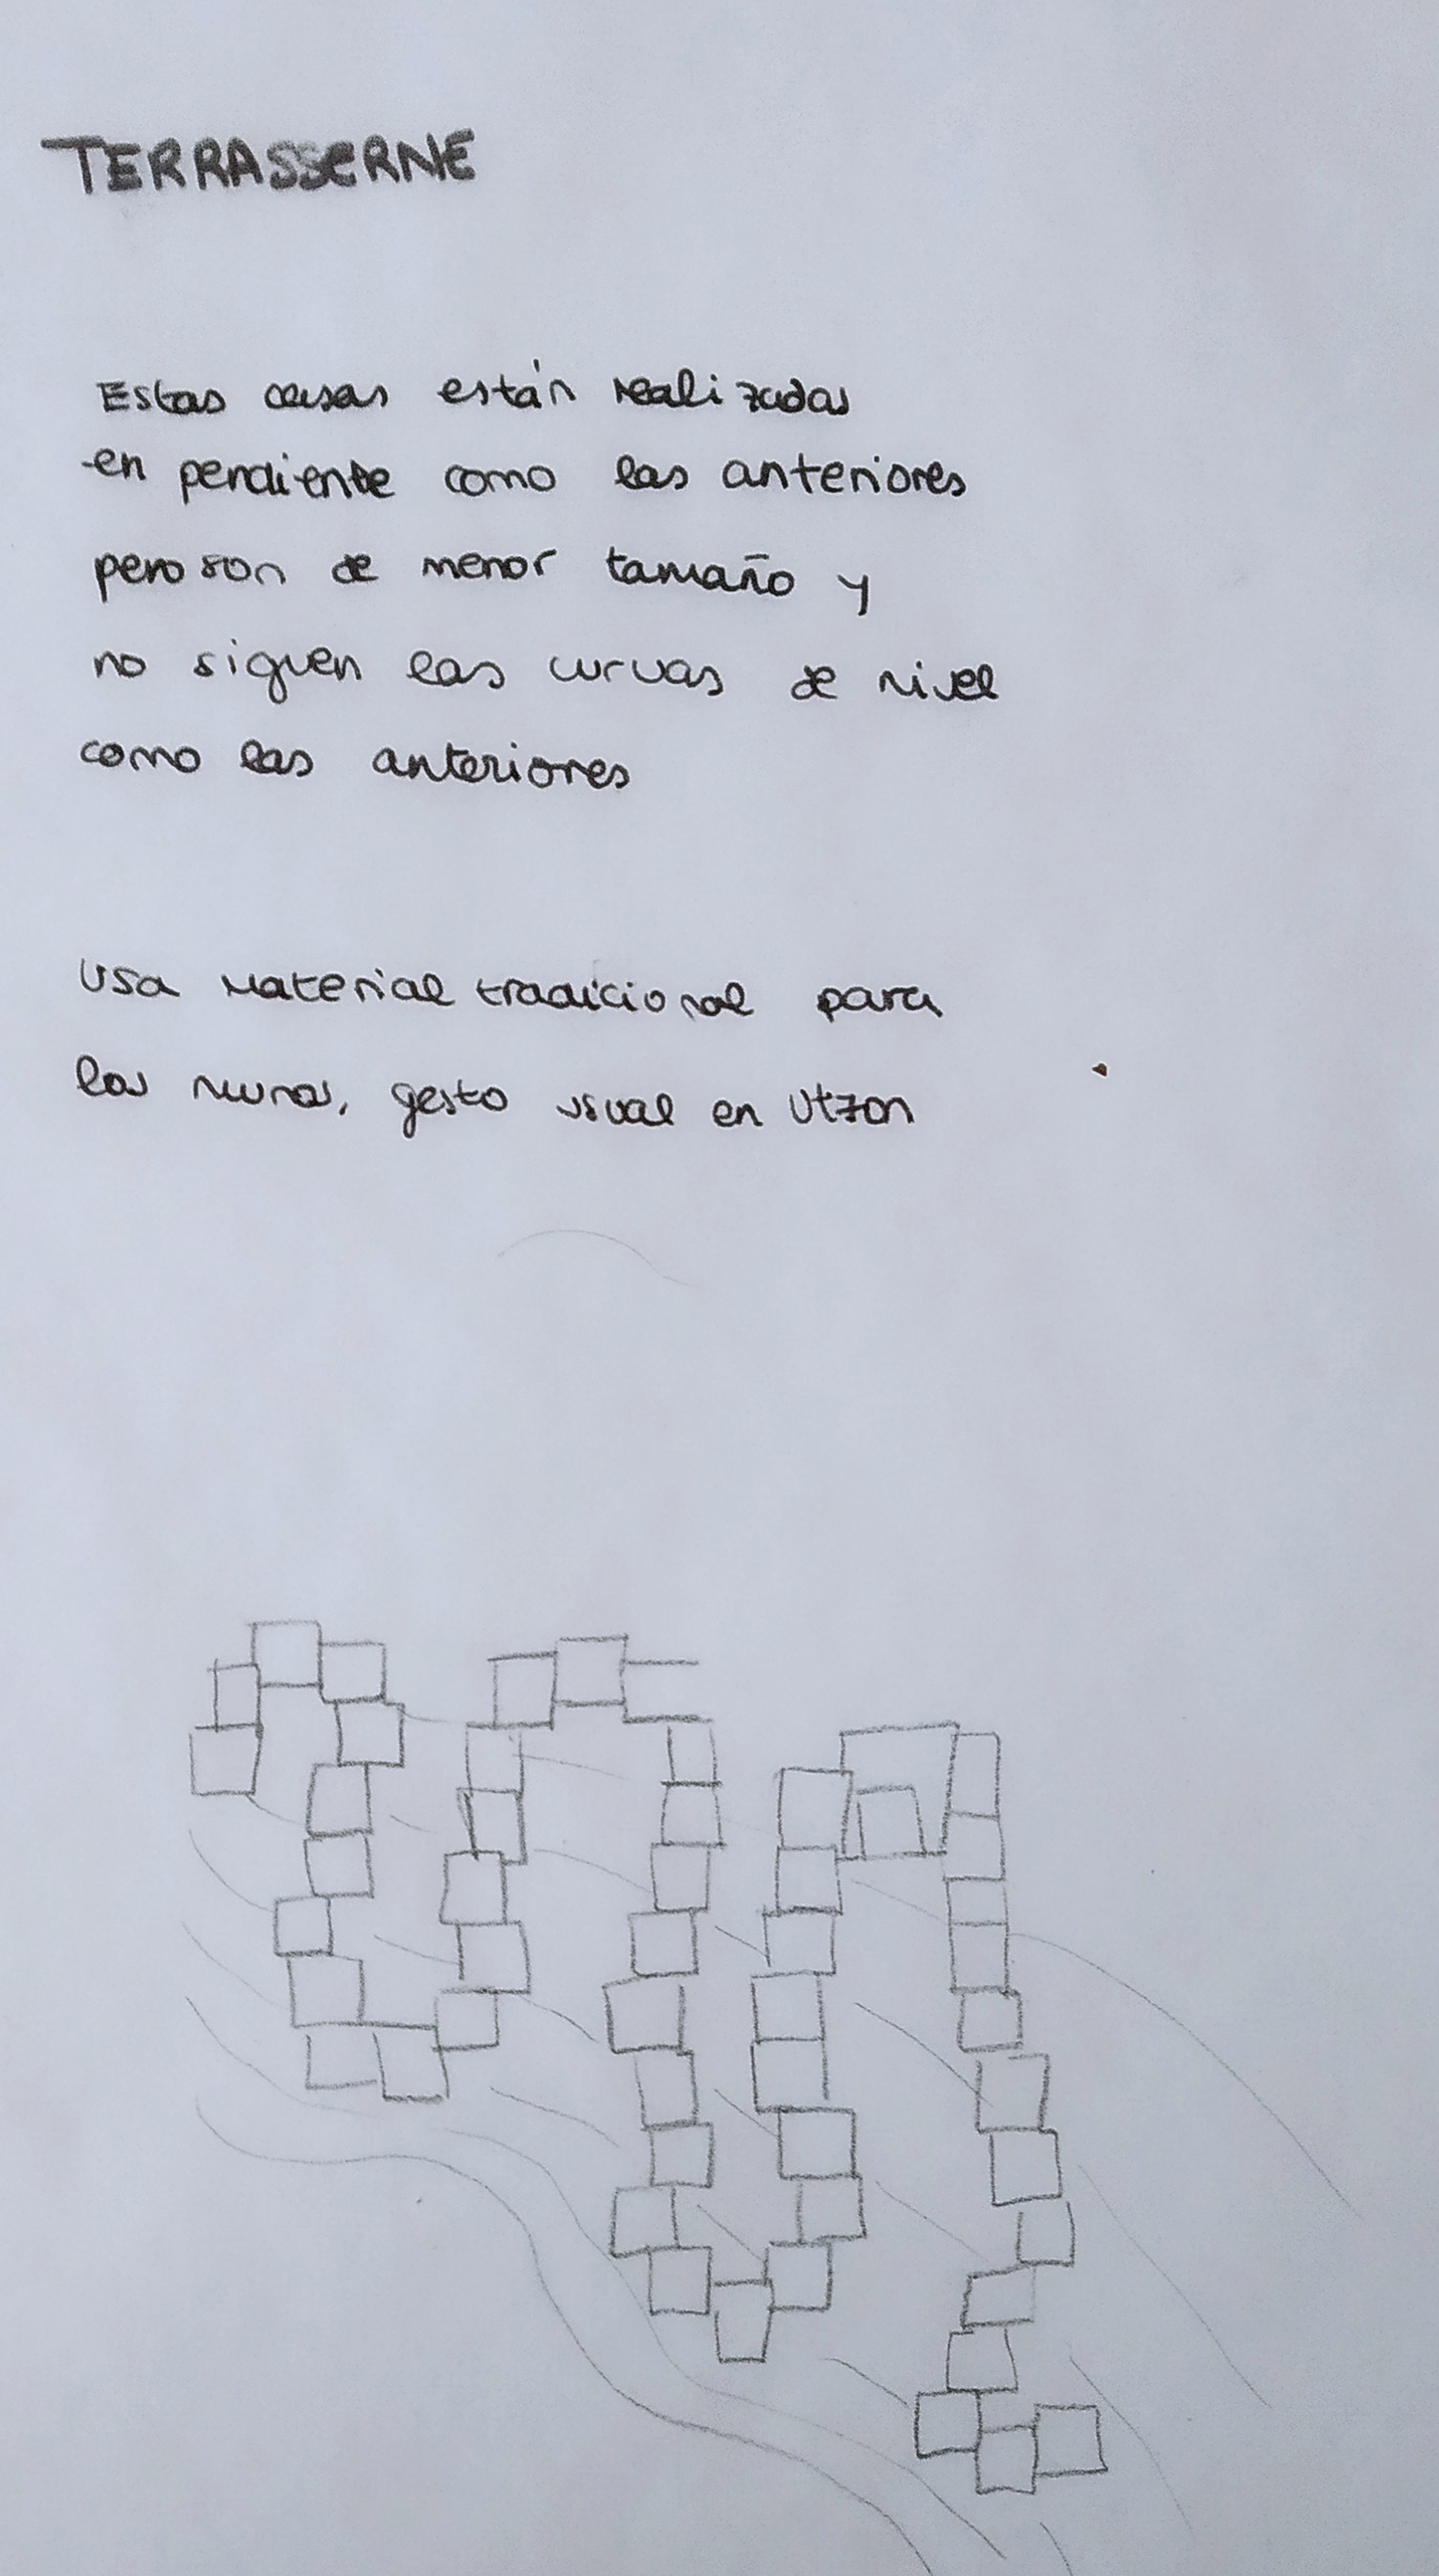 TERRASSERNE
Estas casas están realizadas
en pendiente como las anteriores
pero son de menor tamaño y
no siguen las curvas de nivel
como las anteriores
Usa material tradicional para
los muros, gesto usual en Utzon